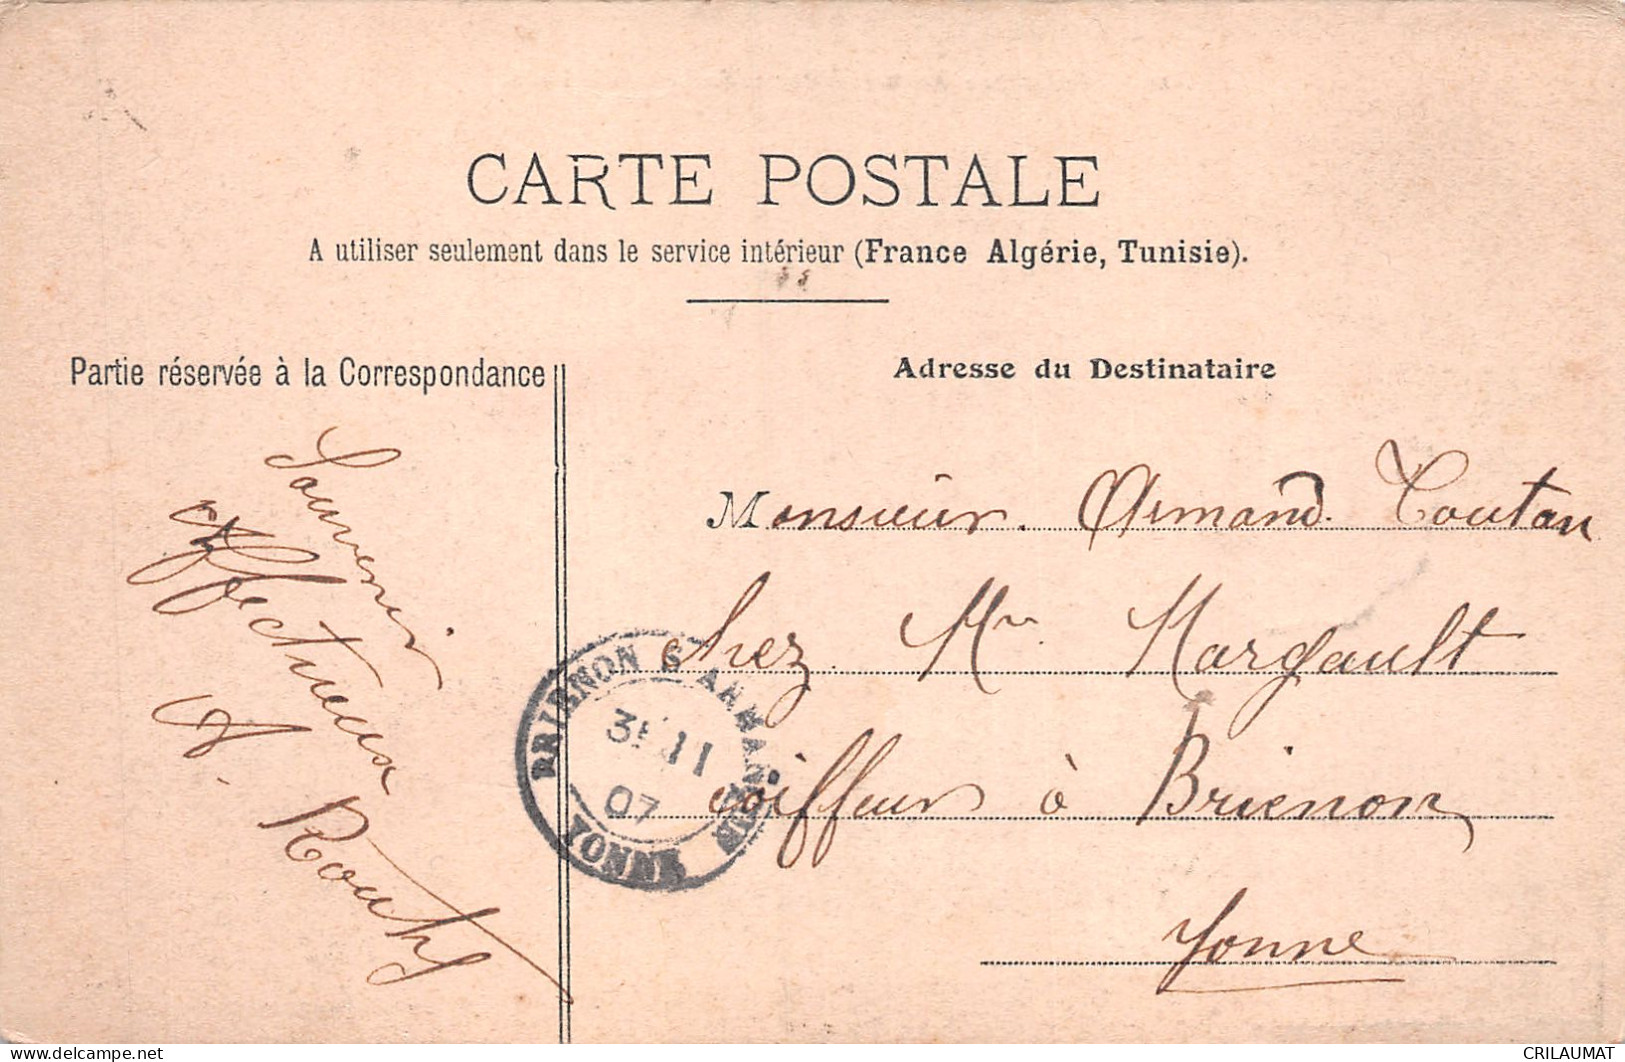 CARTE POSTALE
A utiliser seulement dans le service intérieur (France Algérie, Tunisie).
Partie réservée à la Correspondance
Adresse du Destinataire
Souvenir
Affectueux
A.
Monsieur. Armand. Toutan
chez Mr. Margault
coiffeur à Brienon
Yonne
BRIENON St ARMANÇON
11
07
YONNE
www.delcampe.net
CRILAUMAT